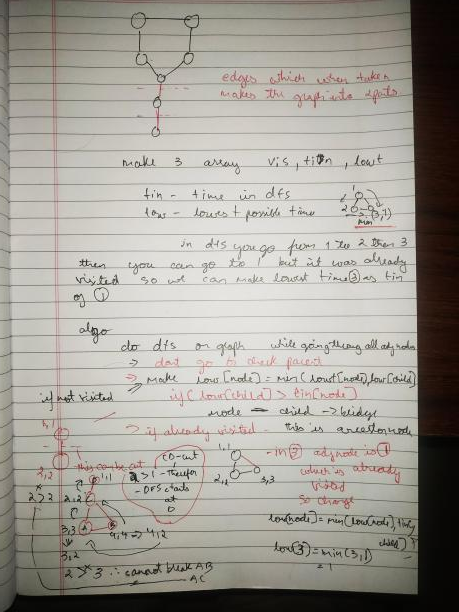 edges which when taken
makes the graph into 2parts.
make 3 array vis, tin, lowt
tin - time in dfs
low - lowest possible time
1
2 (3,1)
min
in dfs you go from 1 to 2 then 3
then you can go to 1 but it was already
visited so we can make lowest time ③ as tin
of ①
algo
do dfs on graph while going throug all adj nodes
→ dont go to check parent
if not visited → make low[node] = min(lowt[node], low[child]
if (low[child] > tin[node]
node — child → bridge
→ if already visited - this is ancestor node
1,1
2,2
→ this can be cut
2 > 2
1,1
2,2
3,3
3,2
4,4 → 4,2
2 > 3 ∴ cannot break AB
AC
CD-cut
2 > 1 - therefor
- DFS starts
at
D
1,1
2,2
3,3
- in ③ adj node is ①
which is already
visited
so change
low(node) = min(low(node), tin(
child)
low(3) = min(3,1)
= 1